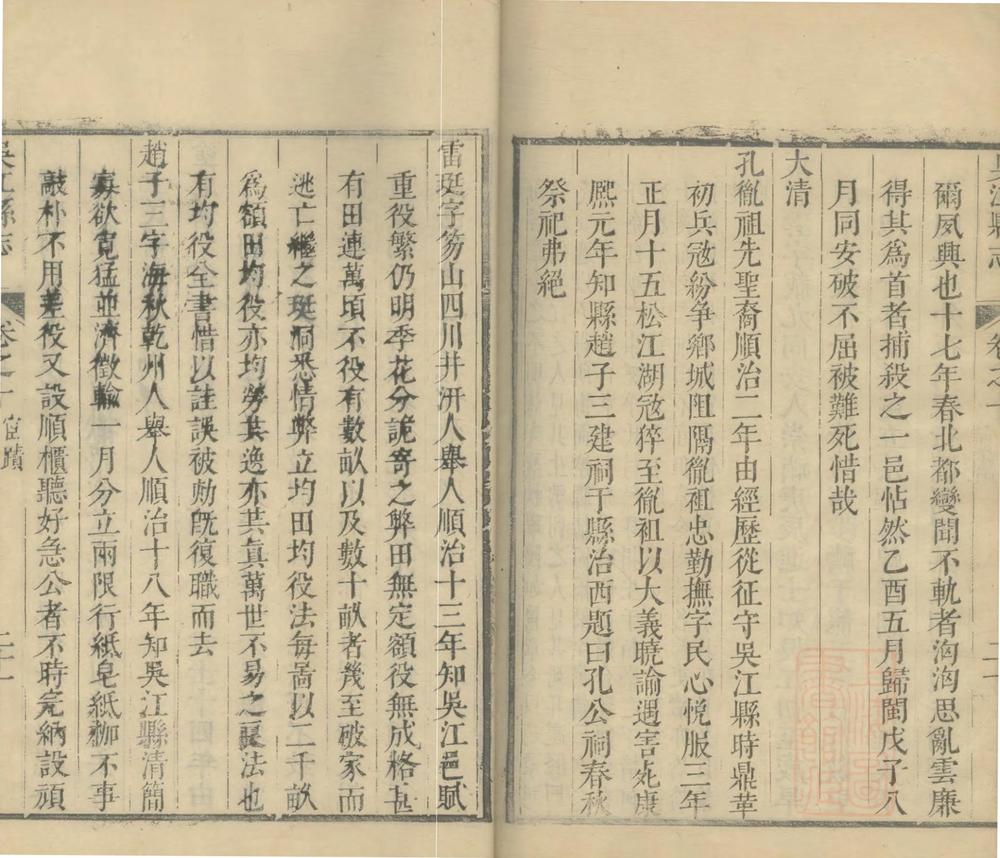 爾夙興也十七年春北都變聞不軌者洶洶思亂雲廉
得其為首者捕殺之一邑帖然乙酉五月歸閩戊子八
月同安破不屈被難死惜哉
大清
孔胤祖先聖裔順治二年由經歷從征守吳江縣時鼎革
初兵冦紛爭鄉城阻隔胤祖忠勤撫字民心悅服三年
正月十五松江湖冦猝至胤祖以大義曉諭遇害死康
熈元年知縣趙子三建祠于縣治西題曰孔公祠春秋
祭祀弗絕
雷珽字笏山四川井研人舉人順治十三年知吳江邑賦
重役繁仍明季花分詭寄之弊田無定額役無成格甚
有田連萬頃不役有數畝以及數十畝者幾至破家而
逃亡繼之珽洞悉情弊立均田均役法每啚以二千畝
為額田均役亦均勞其逸亦其眞萬世不易之良法也
有均役全書惜以詿誤被劾旣復職而去
趙子三字海秋乾州人舉人順治十八年知吳江縣清簡
寡欲寬猛並濟徵輸一月分立兩限行紙皂紙枷不事
敲朴不用差役又設順櫃聽好急公者不時完納設頑
吳江縣志
卷之
宦蹟